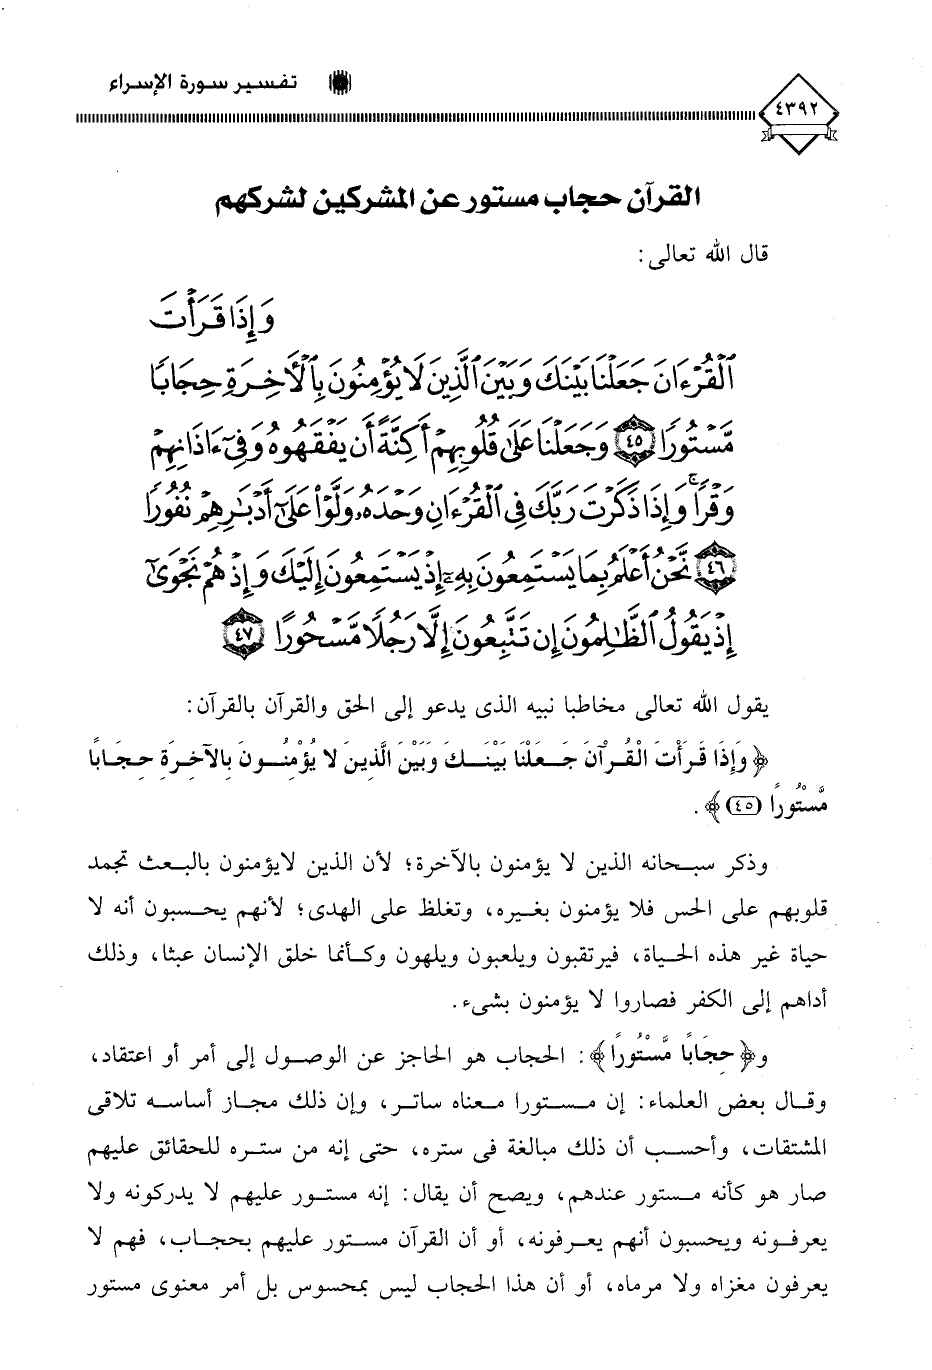 ٤٣٩٢
تفسير سورة الإسراء
القرآن حجاب مستور عن المشركين لشركهم
قال الله تعالى:
وَإِذَا قَرَأْتَ
ٱلْقُرْءَانَ جَعَلْنَا بَيْنَكَ وَبَيْنَ ٱلَّذِينَ لَا يُؤْمِنُونَ بِٱلْأَخِرَةِ حِجَابًا
مَّسْتُورًا ٤٥ وَجَعَلْنَا عَلَىٰ قُلُوبِهِمْ أَكِنَّةً أَن يَفْقَهُوهُ وَفِىٓ ءَاذَانِهِمْ
وَقْرًا ۚ وَإِذَا ذَكَرْتَ رَبَّكَ فِى ٱلْقُرْءَانِ وَحْدَهُۥ وَلَّوْا۟ عَلَىٰٓ أَدْبَٰرِهِمْ نُفُورًا
٤٦ نَّحْنُ أَعْلَمُ بِمَا يَسْتَمِعُونَ بِهِۦٓ إِذْ يَسْتَمِعُونَ إِلَيْكَ وَإِذْ هُمْ نَجْوَىٰٓ
إِذْ يَقُولُ ٱلظَّٰلِمُونَ إِن تَتَّبِعُونَ إِلَّا رَجُلًا مَّسْحُورًا ٤٧
يقول الله تعالى مخاطبا نبيه الذى يدعو إلى الحق والقرآن بالقرآن:
﴿وَإِذَا قَرَأْتَ الْقُرْآنَ جَعَلْنَا بَيْنَكَ وَبَيْنَ الَّذِينَ لا يُؤْمِنُونَ بِالآخِرَةِ حِجَابًا
مَّسْتُورًا (٤٥)﴾.
وذكر سبحانه الذين لا يؤمنون بالآخرة؛ لأن الذين لايؤمنون بالبعث تجمد
قلوبهم على الحس فلا يؤمنون بغيره، وتغلظ على الهدى؛ لأنهم يحسبون أنه لا
حياة غير هذه الحياة، فيرتقبون ويلعبون ويلهون وكأنما خلق الإنسان عبثا، وذلك
أداهم إلى الكفر فصاروا لا يؤمنون بشىء.
و﴿حِجَابًا مَّسْتُورًا﴾: الحجاب هو الحاجز عن الوصول إلى أمر أو اعتقاد،
وقال بعض العلماء: إن مستورا معناه ساتر، وإن ذلك مجاز أساسه تلاقى
المشتقات، وأحسب أن ذلك مبالغة فى ستره، حتى إنه من ستره للحقائق عليهم
صار هو كأنه مستور عندهم، ويصح أن يقال: إنه مستور عليهم لا يدركونه ولا
يعرفونه ويحسبون أنهم يعرفونه، أو أن القرآن مستور عليهم بحجاب، فهم لا
يعرفون مغزاه ولا مرماه، أو أن هذا الحجاب ليس بمحسوس بل أمر معنوى مستور